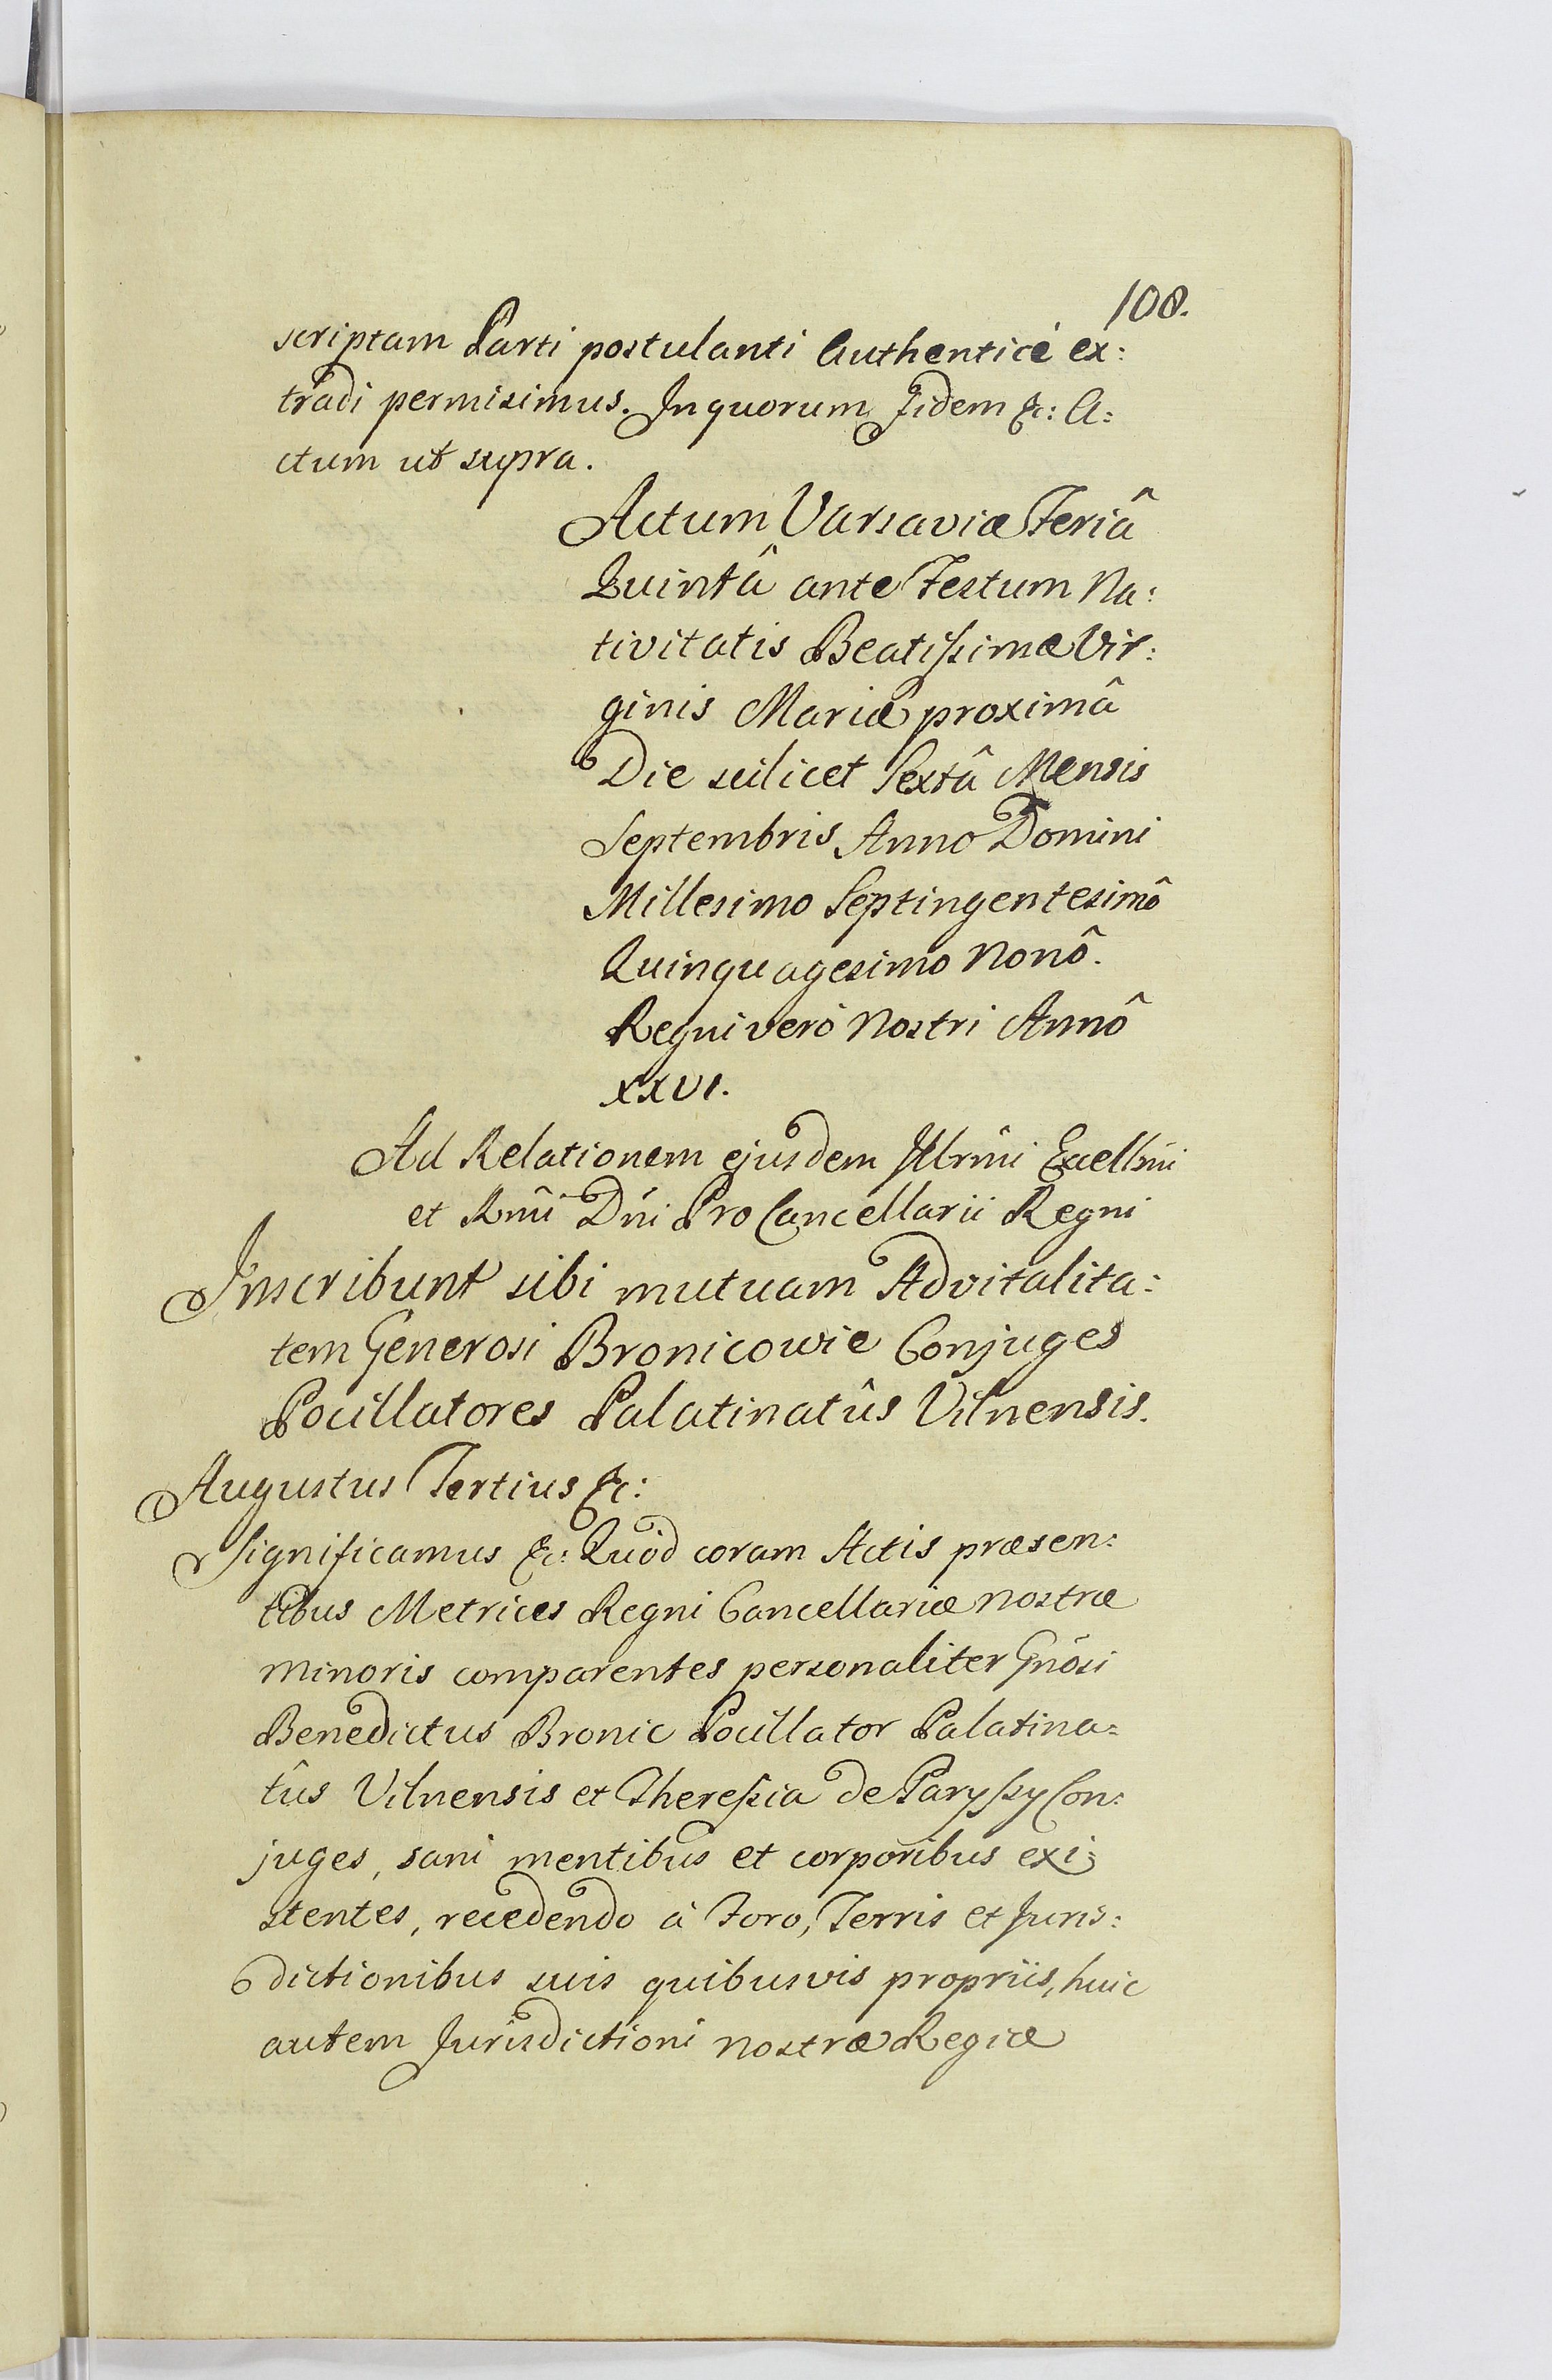 108.
scriptam Parti postulanti Authenticè ex:
tradi permisimus. In quorum Fidem &c: A:
ctum ut supra.
Actum Varsaviæ Feriâ
Quintâ ante Festum Na:
tivitatis Beatissimæ Vir:
ginis Mariæ proximâ
Die scilicet Sextâ Mensis
Septembris Anno Domini
Millesimo Septingentesimô
Quinquagesimo Nonô.
Regni verò Nostri Annô
XXVI.
Ad Relationem ejusdem Illrm̃i Excellm̃i
et Rm̃i Dñi Pro Cancellarii Regni
Inscribunt sibi mutuam Advitalita:
tem Generosi Bronicowie Conjuges
Pocillatores Palatinatûs Vilnensis.
Augustus Tertius &c:
Significamus &c: Quòd coram Actis præsen:
tibus Metrices Regni Cancellariæ nostræ
minoris comparentes personaliter Gnõsi
Benedictus Bronic Pocillator Palatina=
tûs Vilnensis et Theressia de Paryssy Con:
juges, sani mentibus et corporibus exi:
stentes, recedendo à Foro, Terris et Juris:
dictionibus suis quibusvis propriis, huic
autem Jurisdictioni nostræ Regiæ